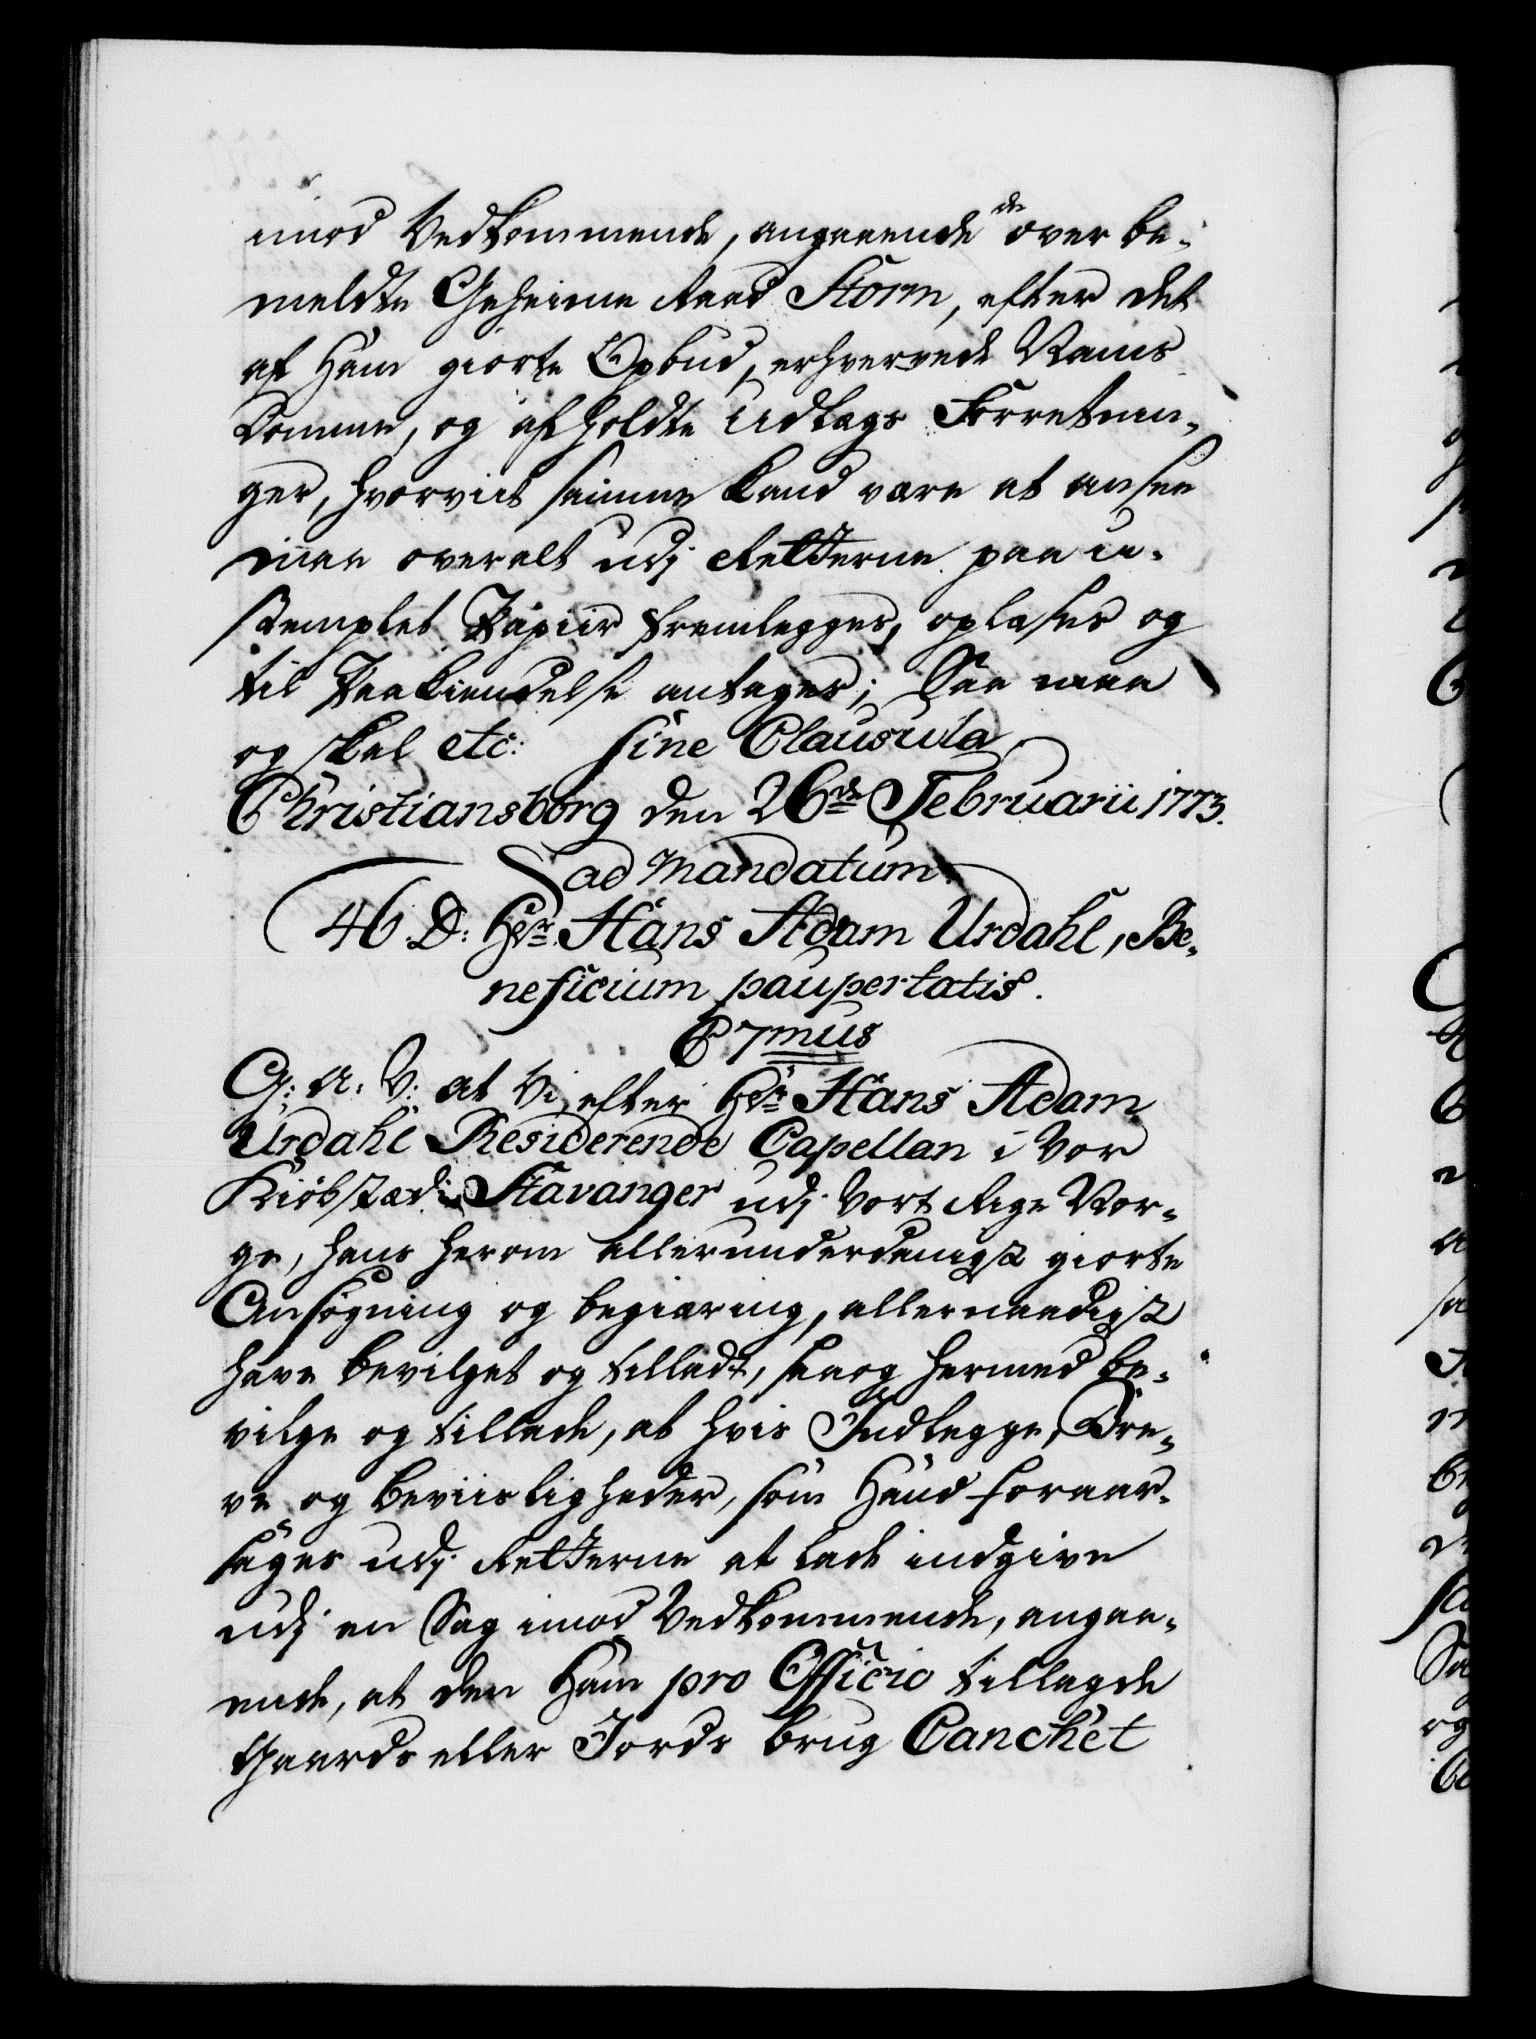 imod Vedkommende, angaaende de over be-
meldte Geheime Raad Storm, efter det
af Ham giorte Opbud, erhvervede Nams
Domme, og afholdte Udlægs Forretnin-
ger, hvorviit saMme kand være at ansee
maa overalt udj Retterne paa u-
stemplet Papiir fremlegges, oplæses og
til Paakiendelse antages; Saa maa
og skal etc: sine Clausula
Christiansborg den 26de Februarii 1773.
ad Mandatum.
46 D: Hr: Hans Adam Urdahl, Be-
neficium paupertatis.
C 7mus
G: A: V: at Vi, efter Hr: Hans Adam
Urdahl Residerende Capellan i Vor
Kiøbstæd Stavanger udj Vort Rige Nor-
ge, hans herom allerunderdanigst giorte
Ansøgning og begiæring, allernaadigst
have bevilget og tilladt, saa og hermed be-
vilge og tillade, at hvis Indlegge, Bre-
ve og Beviisligheder, som Hand foraar-
sages udj Retterne at lade indgive
udj en Sag imod Vedkommende, angaa-
ende, at den Ham pro Officio tillagde
Gaards eller Jords brug Canchet